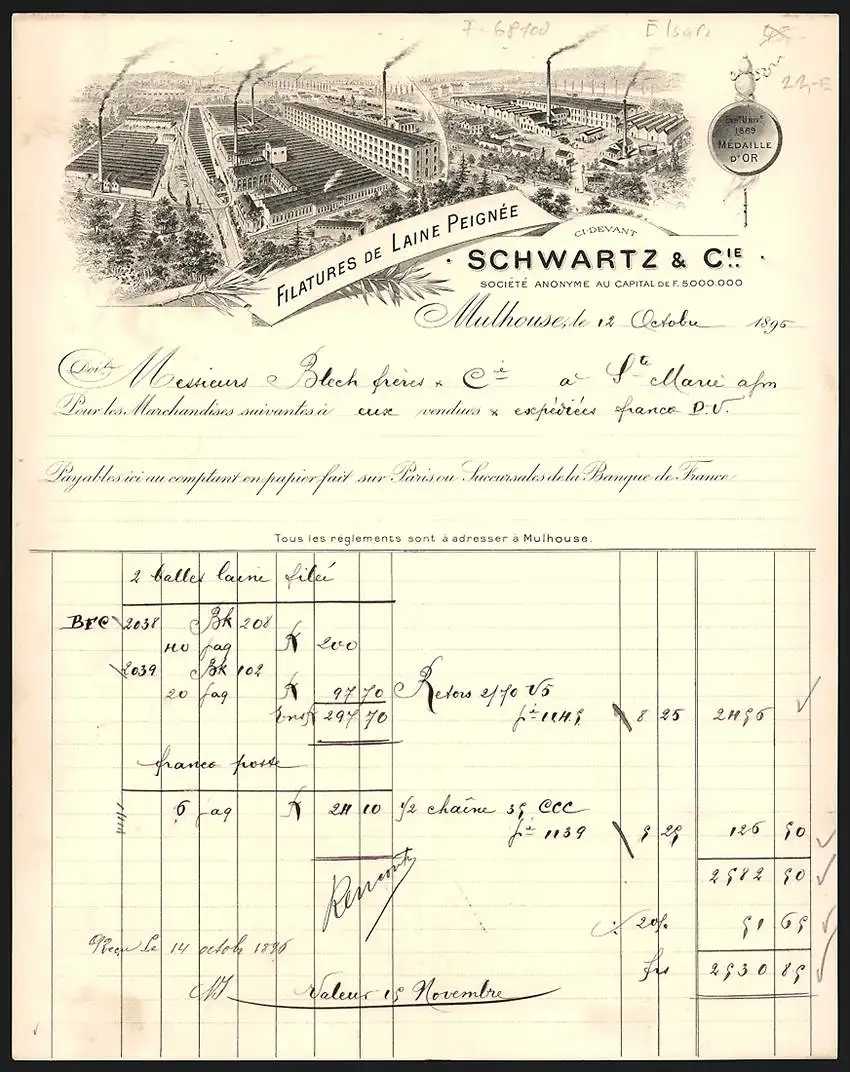 F-68100 Elsaß
22,-E
EXPON UNIVLE
1889
MÉDAILLE
D'OR
FILATURES DE LAINE PEIGNÉE
CI-DEVANT
SCHWARTZ & CIE.
SOCIÉTÉ ANONYME AU CAPITAL DE F. 5000.000
Mulhouse, le 12 Octobre 1896
Doit Messieurs Blech frères & Cie à Ste Marie a/m
Pour les Marchandises suivantes à eux vendues & expédiées franco P.V.
Payables ici au comptant en papier fait sur Paris ou Succursales de la Banque de France
Tous les réglements sont à adresser à Mulhouse.
2 balles laine filée
BFC 2038 Bk 208
40 faq K 200
2039 Bk 102
20 faq K 97 70 Retors 2/70 V5
Ens. K 297 70 1145 8 25 2456
franco poste
5 faq K 24 10 1/2 chaîne 35 CCC
1139 5 25 126 50
2582 50
Rencontré
2% 51 65
Reçu le 14 octobr 1896
frs 2530 85
Valeur 15 Novembre